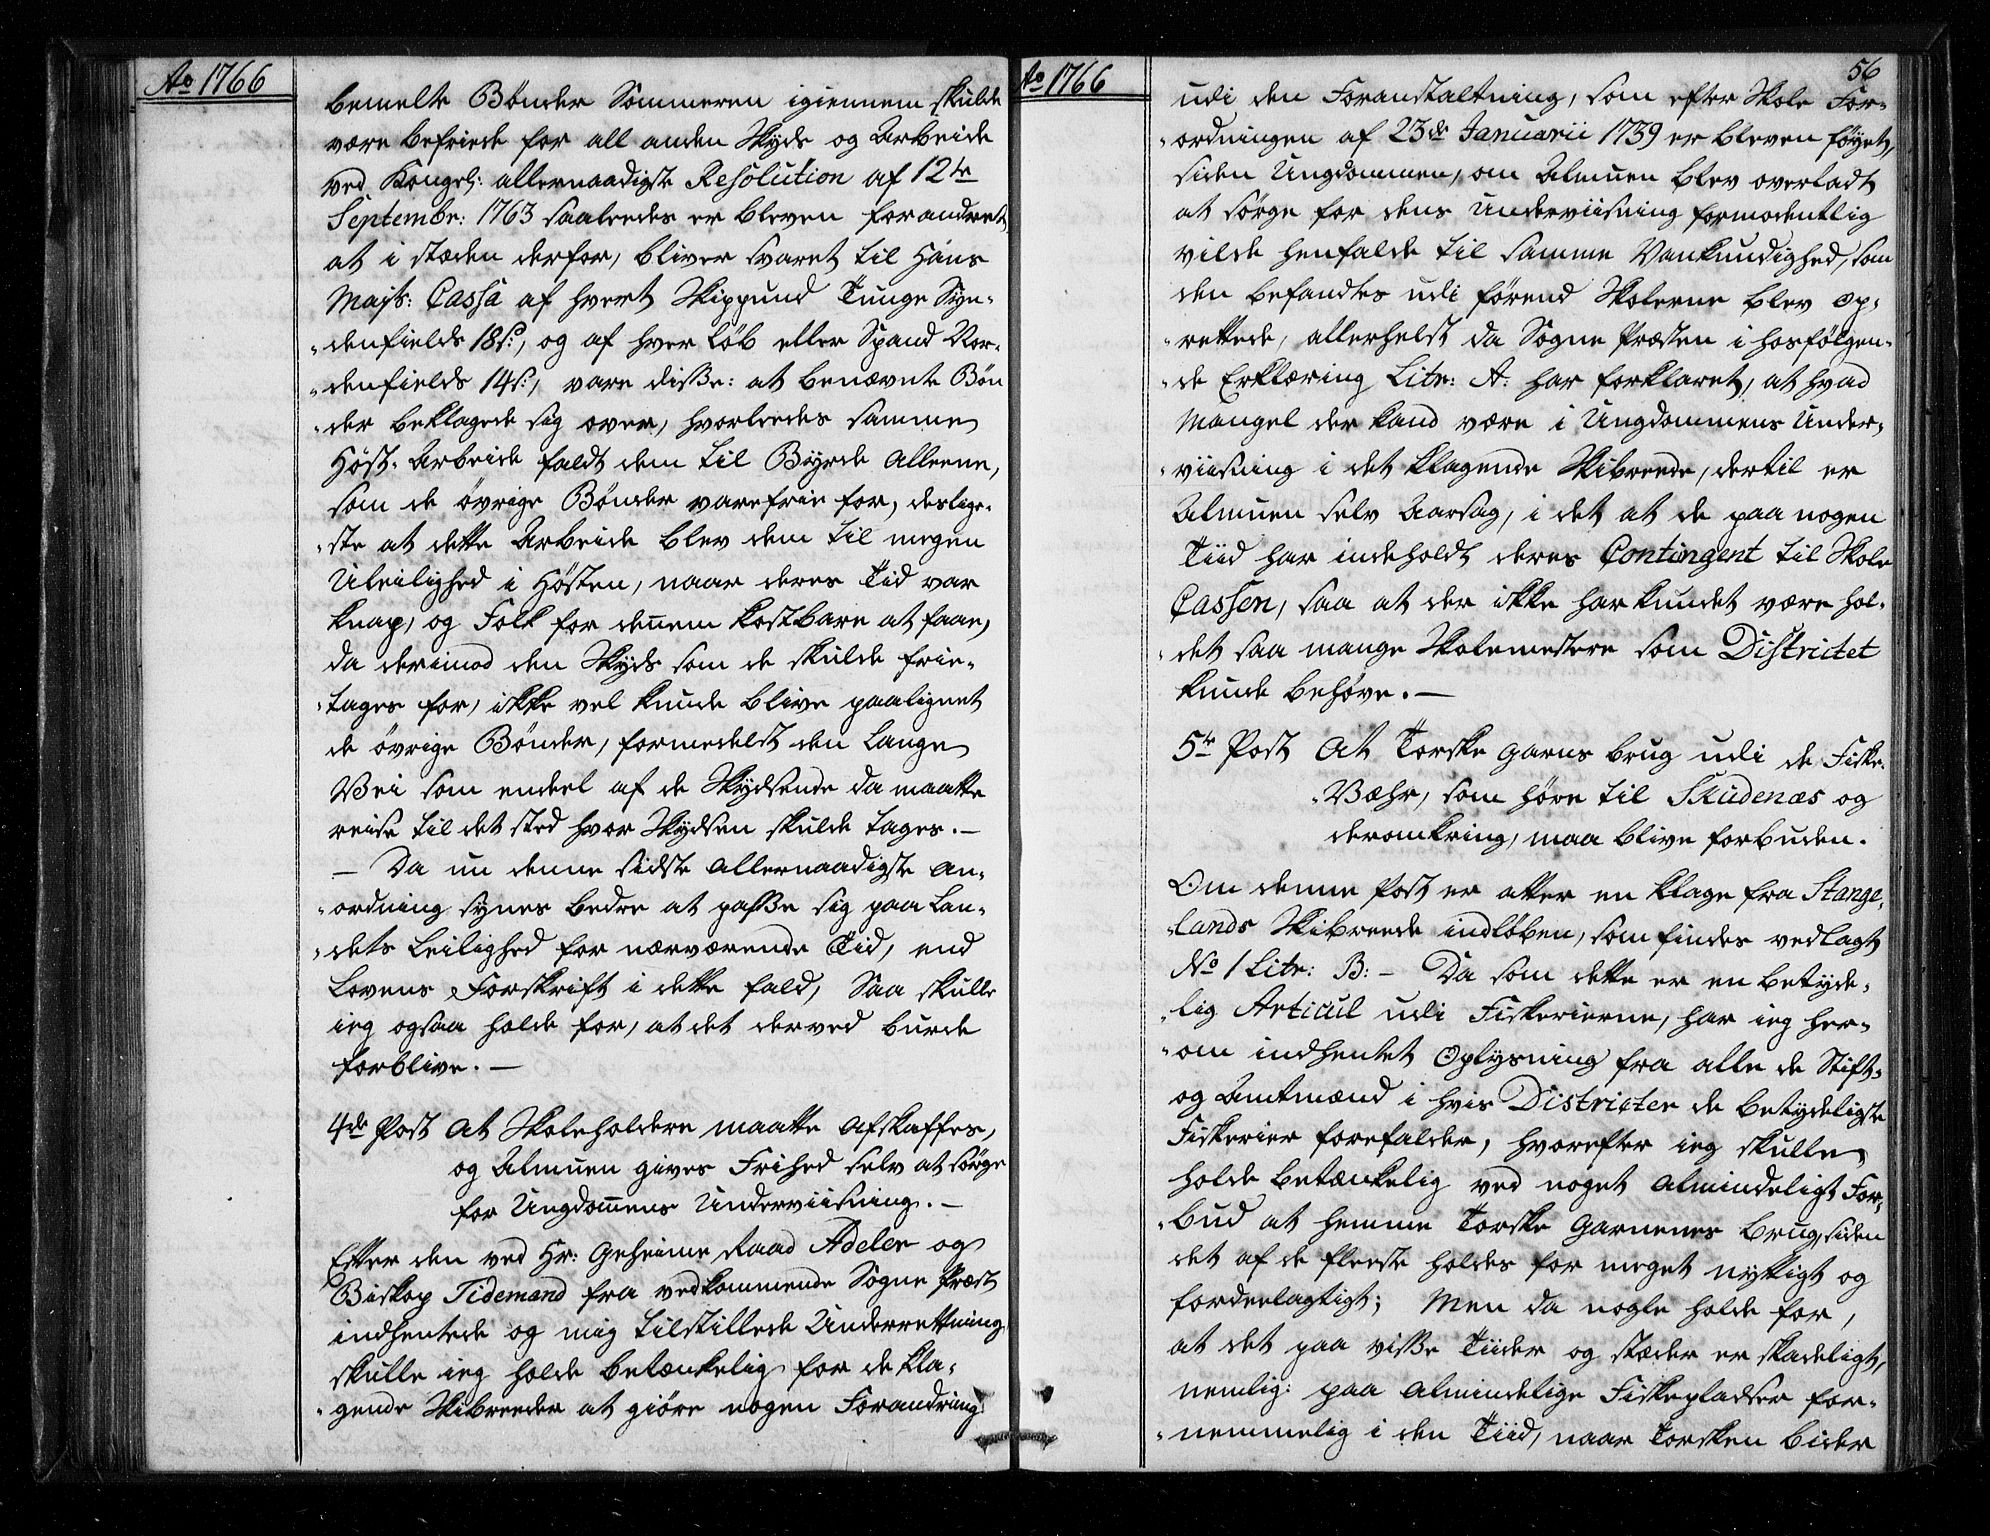 Ao 1766
bemelte Bønder Sommeren igiennem skulde
være befriede for all anden Skyds og Arbeide
ved Kongel: allernaadigste Resolution af 12te
Septembr: 1763 saaledes er bleven forandret,
at i stæden derfor, bliver svaret til Hans
Majts: Cassa af hvert Skippund Tunge Syn-
-denfields 18s:, og af hver Løb eller Spand Nor-
-denfields 14s:, vare disse: at benævnte Bøn
-der beklagede sig over, hvorledes samme
Høst-Arbeide faldt dem til Byrde alleene,
som de øvrige Bønder vare frie for, deslige-
-ste at dette Arbeide blev dem til megen
Uleilighed i Høsten, naar deres Tid var
knap, og Folk for dennem kostbare at faae,
da derimod den Skyds som de skulde frie-
-tages for, ikke vel kunde blive paalignet
de øvrige Bønder, formedelst den lange
Vei som endeel af de Skydsende da maatte
reise til det sted hvor Skydsen skulde tages. -
- Da nu denne sidste allernaadigste An-
-ordning synes bedre at passe sig paa Lan-
-dets Leilighed for nærværende Tid, end
Lovens Forskrift i dette fald, Saa skulle
ieg ogsaa holde for, at det derved burde
forblive. -
4de Post At Skoleholdere maatte afskaffes,
og Almuen gives Frihed selv at sørge
for Ungdomens Underviisning. -
Efter den ved Hr: Geheime Raad Adeler og
Biskop Tidemand fra vedkommende Sogne Præst
indhentede og mig tilstillede Underretning,
skulle ieg holde betænkelig for de kla-
-gende Skibreeder at giøre nogen Forandring
Ao 1766
56
udi den Foranstaltning, som efter Skole For-
-ordningen af 23de Januarii 1739 er bleven føyet,
siden Ungdommen, om Almuen blev overladt
at sørge for dens Underviisning formodentlig
vilde henfalde til samme Vankundighed, som
den befandtes udi førend Skolerne blev op-
-rettede, allerhelst da Sogne Præsten i hosfølgen-
-de Erklæring Litr: A: har forklaret, at hvad
Mangel der kand være i Ungdommens Under-
-viisning i det klagende Skibreede, dertil er
Almuen selv Aarsag, i det at de paa nogen
Tiid har indeholdt deres Contingent til Skole
Cassen, saa at der ikke har kundet være hol-
-det saa mange Skolemestere som Districtet
kunde behøve. -
5te Post At Torske Garns brug udi de Fiske-
-Væhr, som høre til Skudenæs og
deromkring, maa blive forbuden.
Om denne Post er atter en klage fra Stange-
-lands Skibreede indløben, som findes vedlagt
No 1 Litr: B: - Da som dette er en betyde-
-lig Articul udi Fiskerierne, har ieg her-
-om indhentet Oplysning fra alle de Stift-
og Amtmænd i hvis Districter de betydeligste
Fiskerier forefalder, hvorefter ieg skulle
holde betænkelig ved noget almindeligt For-
-bud at hemme Torske Garnenes brug, siden
det af de fleeste holdes for meget nyttigt og
fordeelagtigt; Men da nogle holde for,
at det paa visse Tiider og stæder er skadeligt,
nemlig: paa almindelige Fiskepladser for-
-nemmelig i den Tiid, naar Torsken bider